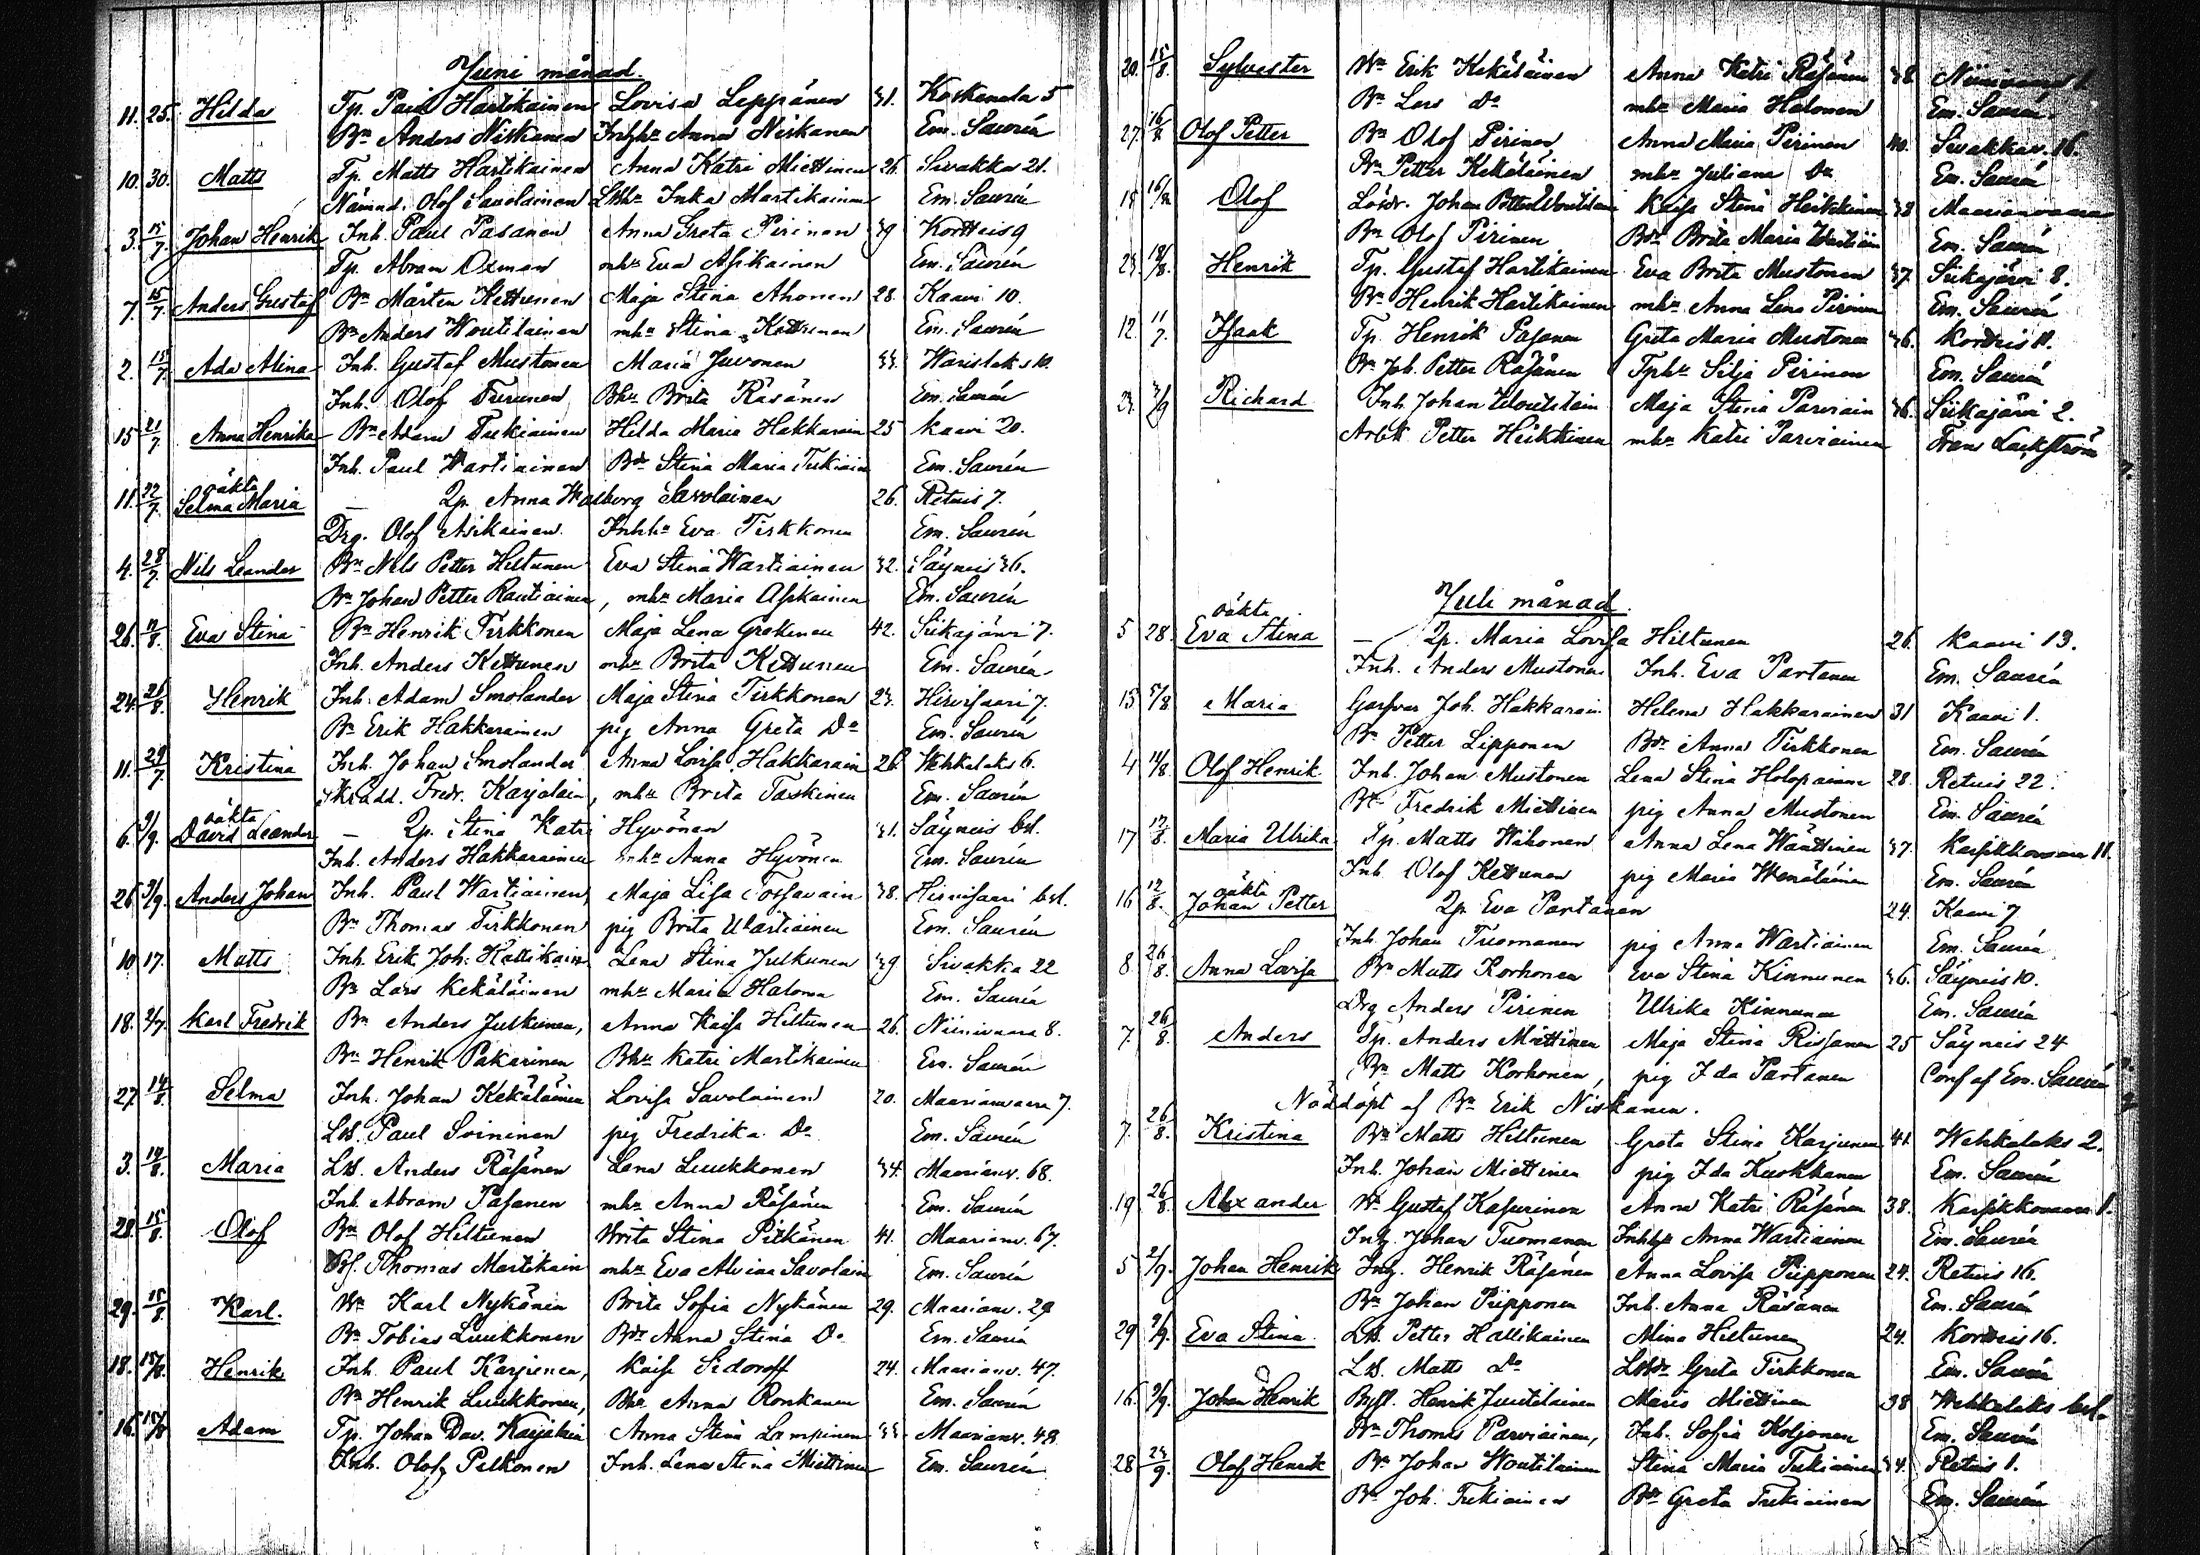 Juni månad.
11. 25. Hilda Tp. Paul Hartikainen Lovisa Leppänen 31. Koskenala 5
Bn Anders Niskanen Inhhu Anna Niskanen Em. Saurén
10. 30. Matts Tp. Matts Hartikainen Anna Katri Miettinen 26. Sivakka 21.
Nämnd. Olof Savolainen Lbhu Inka Martikainen Em. Saurén
3. 15/7. Johan Henrik Inh. Paul Pasanen Anna Greta Pirinen 39 Kortteis 9
Tp. Abram Oxman mhu Eva Asikainen Em. Saurén
7. 15/7. Anders Gustaf Bn Mårten Kettunen Maja Stina Ahonen 28. Kaavi 10.
Bn Anders Woutilainen mhu Stina Kettunen Em. Saurén
2. 15/7. Ada Alina Inh. Gustaf Mustonen Maria Juvonen 33. Warislaks 10.
Inh. Olof Turunen Bhu Brita Räsänen Em. Saurén
15 21/7 Anna Henrika Bn Adam Tukiainen Hilda Maria Hakkarain 25 Kaavi 20.
Inh. Paul Wartiainen Bdr Stina Maria Tukiain Em. Saurén
oäkta
11. 22/7. Selma Maria — Qp. Anna Walborg Savolainen 26. Retuis 7.
Drg. Olof Asikainen. Inhhu Eva Tirkkonen Em. Saurén
4. 28/7 Nils Leander Bn Nils Petter Hiltunen Eva Stina Wartiainen 32. Säyneis 36.
Bn Johan Petter Rautiainen, mhu Maria Asikainen Em. Saurén
26. 11/8. Eva Stina Bn Henrik Tirkkonen Maja Lena Grekinen 42. Siikajärvi 7.
Inh. Anders Kettunen mhu Brita Kettunen Em. Saurén
24. 21/8. Henrik Inh. Adam Smolander Maja Stina Tirkkonen 23. Hirvisaari 7.
Bn Erik Hakkarainen pig Anna Greta Do Em. Saurén
11. 29/7 Kristina Inh. Johan Smolander Anna Lovisa Hakkarain 26 Wehkalaks 6.
Skrädd. Fredr. Karjalain, mhu Brita Taskinen Em. Saurén
oäkta
6. 2/9. David Leander — Qp. Stina Katri Hyvönen 31. Säyneis bsl.
Inh. Anders Hakkarainen mhu Anna Hyvönen Em. Saurén
26. 2/9. Anders Johan Inh. Paul Wartiainen Maja Lisa Tossavain 38. Hirvisaari bsl.
Bn Thomas Tirkkonen pig Brita Wartiainen Em. Saurén
10 17. Matts Inh. Erik Joh. Hallikain Lena Stina Julkunen 39 Sivakka 22
Bn Lars Kekäläinen mhu Maria Halonen Em. Saurén
18. 2/7. Karl Fredrik Bn Anders Julkunen, Anna Kaisa Hiltunen 26. Niinivaara 8.
Bn Henrik Pakarinen Bhu Katri Martikainen Em. Saurén
27. 14/8. Selma Inh. Johan Kekäläinen Lovisa Savolainen 20. Maarianvaara 7.
Lb. Paul Soininen pig Fredrika Do Em. Saurén
3. 14/8. Maria Lb. Anders Räsänen Lena Luukkonen 34. Maarianv. 68.
Inh. Abram Pasanen mhu Anna Räsänen Em. Saurén
28. 15/8. Olof Bn Olof Hiltunen Brita Stina Pitkänen 41. Maarianv. 67.
Thomas Martikain mhu Eva Alvina Savolain Em. Saurén
29. 15/8. Karl. Wn Karl Nykänen Brita Sofia Nykänen 29. Maarianv. 29
Bn Tobias Luukkonen Bdr Anna Stina Do Em. Saurén
18. 15/8. Henrik Inh. Paul Karjunen, Kaisa Sidoroff 24. Maarianv. 47.
Bn Henrik Luukkonen, Bhu Anna Ronkanen Em. Saurén
16. 15/8 Adam Tp. Johan Dav. Karjalain Anna Stina Lampinen 33. Maarianv. 48
Inh. Olof Pelkonen Inh. Lena Stina Miettinen Em. Saurén
20. 15/8. Sylvester Wn Erik Kekäläinen Anna Katri Räsänen 38. Niinivaara 1
Bn Lars Do mhu Maria Halonen Em. Saurén.
27. 16/8 Olof Petter Bn Olof Pirinen Anna Maria Pirinen 40. Sivakkav. 16.
Bn Petter Kekäläinen mhu Juliana Do Em. Saurén
15 16/8 Olof Lösdr. Johan Petter Woutilain Kaisa Stina Heikkinen 38 Maarianvaara
Bn Olof Pirinen Bdr Brita Maria Wartiain Em. Saurén
23. 18/8. Henrik Tp. Gustaf Hartikainen Eva Brita Mustonen 37 Siikajärvi 8.
Bn Henrik Hartikainen mhu Anna Lena Pirinen Em. Saurén
12. 11/7. Isaak Tp. Henrik Pasanen Greta Maria Mustonen 36. Kortteis 11.
Bn Joh. Petter Räsänen Tphu Silja Pirinen Em. Saurén
23. 3/9 Richard Inh. Johan Woutilain Maja Stina Parviain 36. Siikajärvi 2.
Arbk. Petter Heikkinen mhu Katri Parviainen Frans Lackström
Juli månad.
oäkta
5 28. Eva Stina — Qp. Maria Lovisa Hiltunen 26 Kaavi 13.
Inh. Anders Mustonen Inh. Eva Partanen Em. Saurén
13 5/8 Maria Garfvar Joh. Hakkarain Helena Hakkarainen 31 Kaavi 1.
Bn Petter Lipponen Bdr Anna Tirkkonen Em. Saurén
4 14/8. Olof Henrik Inh. Johan Mustonen Lena Stina Holopainen 28. Retuis 22.
Bn Fredrik Miettinen pig Anna Mustonen Em. Saurén
17 12/8. Maria Ulrika Tp. Matts Wihonen Anna Lena Wänttinen 37. Karsikkovaara 11.
Inh. Olof Kettunen pig Maria Wenäläinen Em. Saurén
oäkta
16 12/8. Johan Petter Qp. Eva Partanen 24. Kaavi 7
Inh. Johan Tuomanen pig Anna Wartiainen Em. Saurén
8. 26/8. Anna Lovisa Bn Matts Korhonen Eva Stina Kinnunen 36. Säyneis 10.
Drg Anders Pirinen Ulrika Kinnunen Em. Saurén
7. 26/8. Anders Tp. Anders Miettinen Maja Stina Rissanen 25 Säyneis 24
Bn Matts Korhonen, pig Ida Partanen Conf af Em. Saurén
Nöddöpt af Bn Erik Niskanen.
7. 26/8. Kristina Bn Matts Hiltunen Greta Stina Karjunen 41. Wehkalaks 2.
Inh. Johan Miettinen pig Ida Kuokkanen Em. Saurén
19 26/8. Alexander Wn Gustaf Kasurinen Anna Katri Räsänen 38. Karsikkovaara 1.
Inh. Johan Tuomanen Inhhu Anna Wartiainen Em. Saurén
5 2/9. Johan Henrik Inh. Henrik Räsänen Anna Lovisa Piipponen 24. Retuis 16.
Bn Johan Piipponen Inh. Anna Räsänen Em. Saurén
29 2/9. Eva Stina Lb. Petter Hallikainen Mina Hiltunen 24. Kortteis 16.
Lb. Matts Do Lbdr Greta Tirkkonen Em. Saurén
16 2/9. Johan Henrik Bysl. Henrik Juutilainen Maria Miettinen 38 Wehkalaks bsl.
Bn Thomas Parviainen, Inh. Sofia Koljonen Em. Saurén
28 23/9. Olof Henrik Bn Johan Woutilainen Stina Maria Tukiainen 34. Retuis 1.
Bn Joh. Tukiainen Bdr Greta Tukiainen Em. Saurén